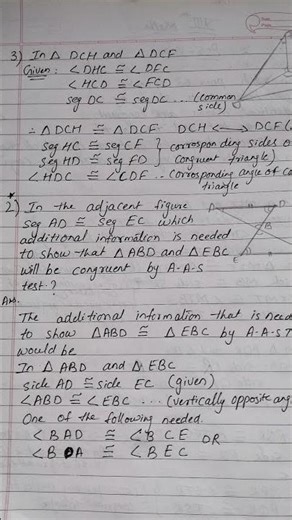 3) In △ DCH and △ DCF
Given : ∠DHC ≅ ∠DFC
∠HCD ≅ ∠FCD
seg DC ≅ seg DC ... (common
side)
∴ △ DCH ≅ △ DCF DCH ⟷ DCF
seg HC ≅ seg CF } corresponding sides of
seg HD ≅ seg FD } congruent triangle)
∠HDC ≅ ∠CDF .. corresponding angle of
triangle
2) In the adjacent figure
seg AD ≅ seg EC which
additional information is needed
to show that △ ABD and △ EBC
will be congruent by A-A-S
test ?
Ans.
The additional information that is
to show △ABD ≅ △ EBC by A-A-S
would be
In △ ABD and △ EBC
side AD ≅ side EC (given)
∠ABD ≅ ∠EBC ... (vertically opposite
One of the following needed.
∠BAD ≅ ∠BCE OR
∠BDA ≅ ∠BEC
A
D
B
E